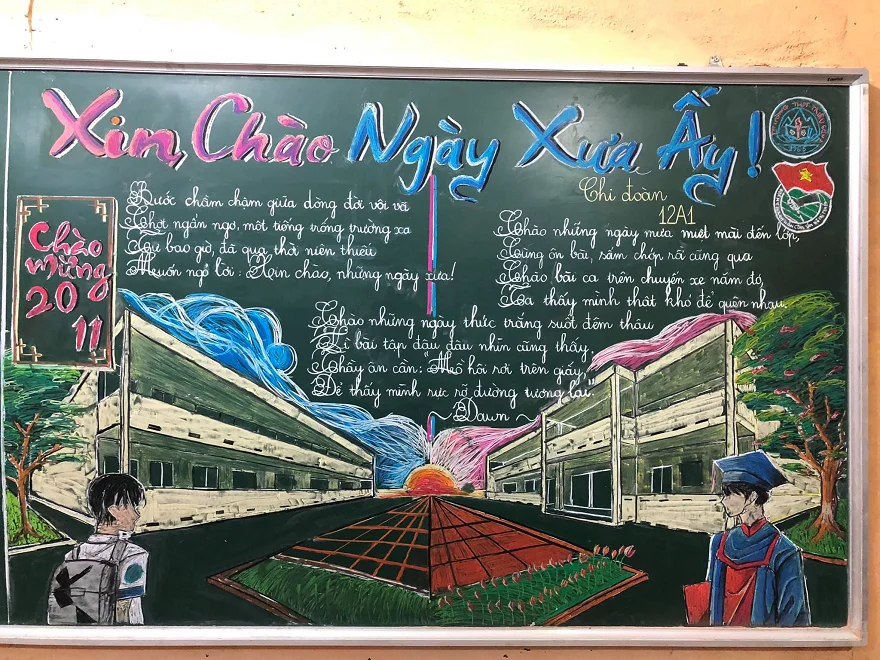 Xin Chào Ngày Xưa Ấy!
Chi đoàn
12A1
Chào
mừng
20
11
Bước chầm chậm giữa dòng đời vội vã
Chợt ngẩn ngơ, một tiếng trống trường xa
Tự bao giờ, đã qua thời niên thiếu
Muốn ngỏ lời: Xin chào, những ngày xưa!
Chào những ngày mưa miệt mài đến lớp,
Cùng ôn bài, sấm chớp rã cũng qua
Chào bài ca trên chuyến xe năm đó,
Ta thấy mình thật khó để quên nhau.
Chào những ngày thức trắng suốt đêm thâu
Vì bài tập đâu đâu nhìn cũng thấy,
Thầy ân cần: "Mồ hôi rơi trên giấy,
Để thấy mình rực rỡ đường tương lai."
~ Dawn ~